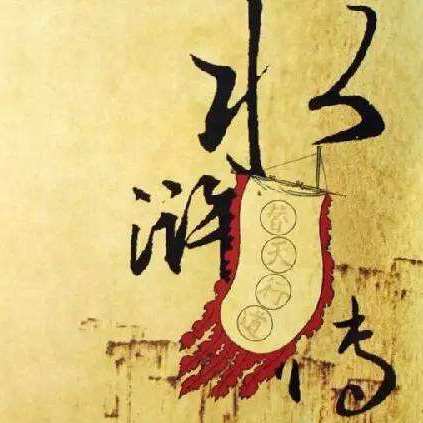 水
浒
传
替天行道